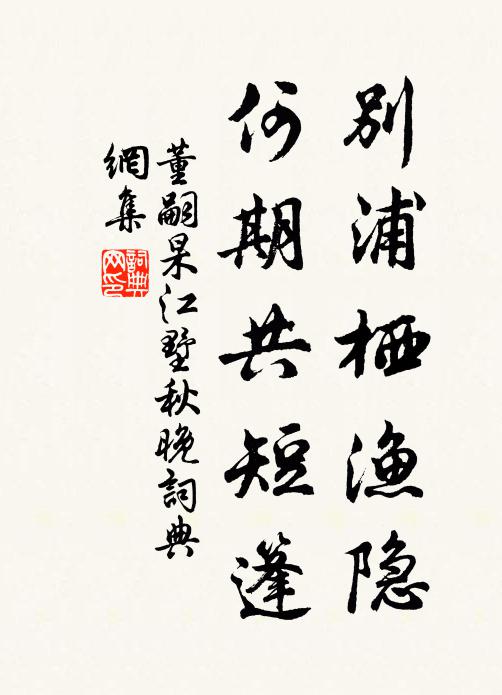 别浦栖渔隐
何期共短篷
董嗣杲江墅秋晚詞典
網集
詞典
网印